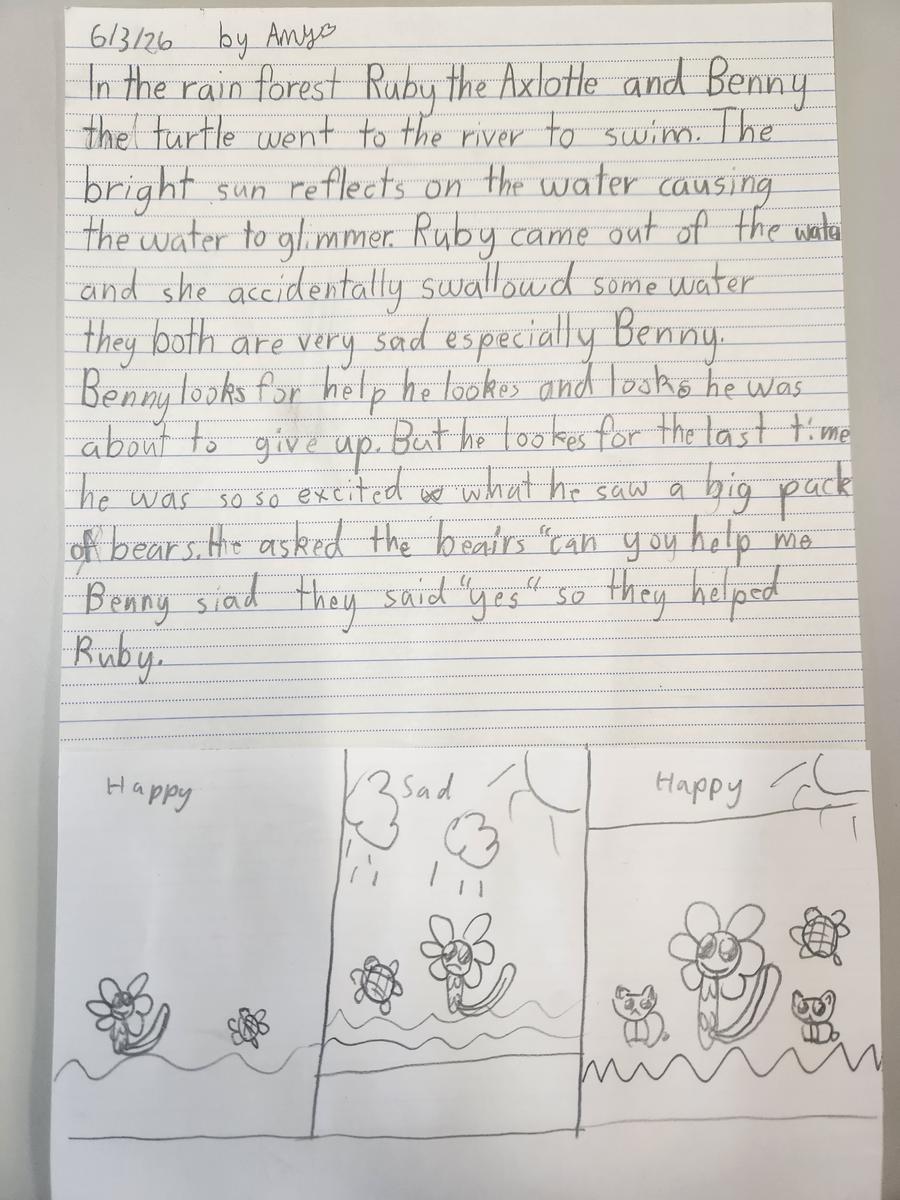 6/3/26 by Amy
In the rain forest Ruby the Axlotle and Benny
the turtle went to the river to swim. The
bright sun reflects on the water causing
the water to glimmer. Ruby came out of the
and she accidentally swallowd some water
they both are very sad especially Benny.
Benny looks for help he lookes and looks he was
about to give up. But he lookes for the last time
he was so so excited what he saw a big pack
of bears. He asked the beairs "can you help me
Benny siad they said "yes" so they helped
Ruby.
Happy
Sad
Happy